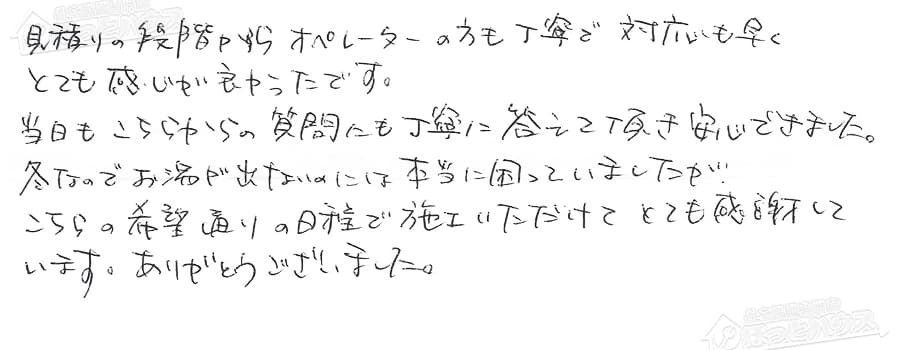 見積りの段階から オペレーターの方も丁寧で 対応も早く
とても感じが良かったです。
当日もこちらからの質問にも丁寧に答えて頂き安心できました。
冬なのでお湯が出ないのには本当に困っていましたが
こちらの希望通りの日程で施工いただけて とても感謝して
います。ありがとうございました。
住宅設備の専門家
ほっとハウス